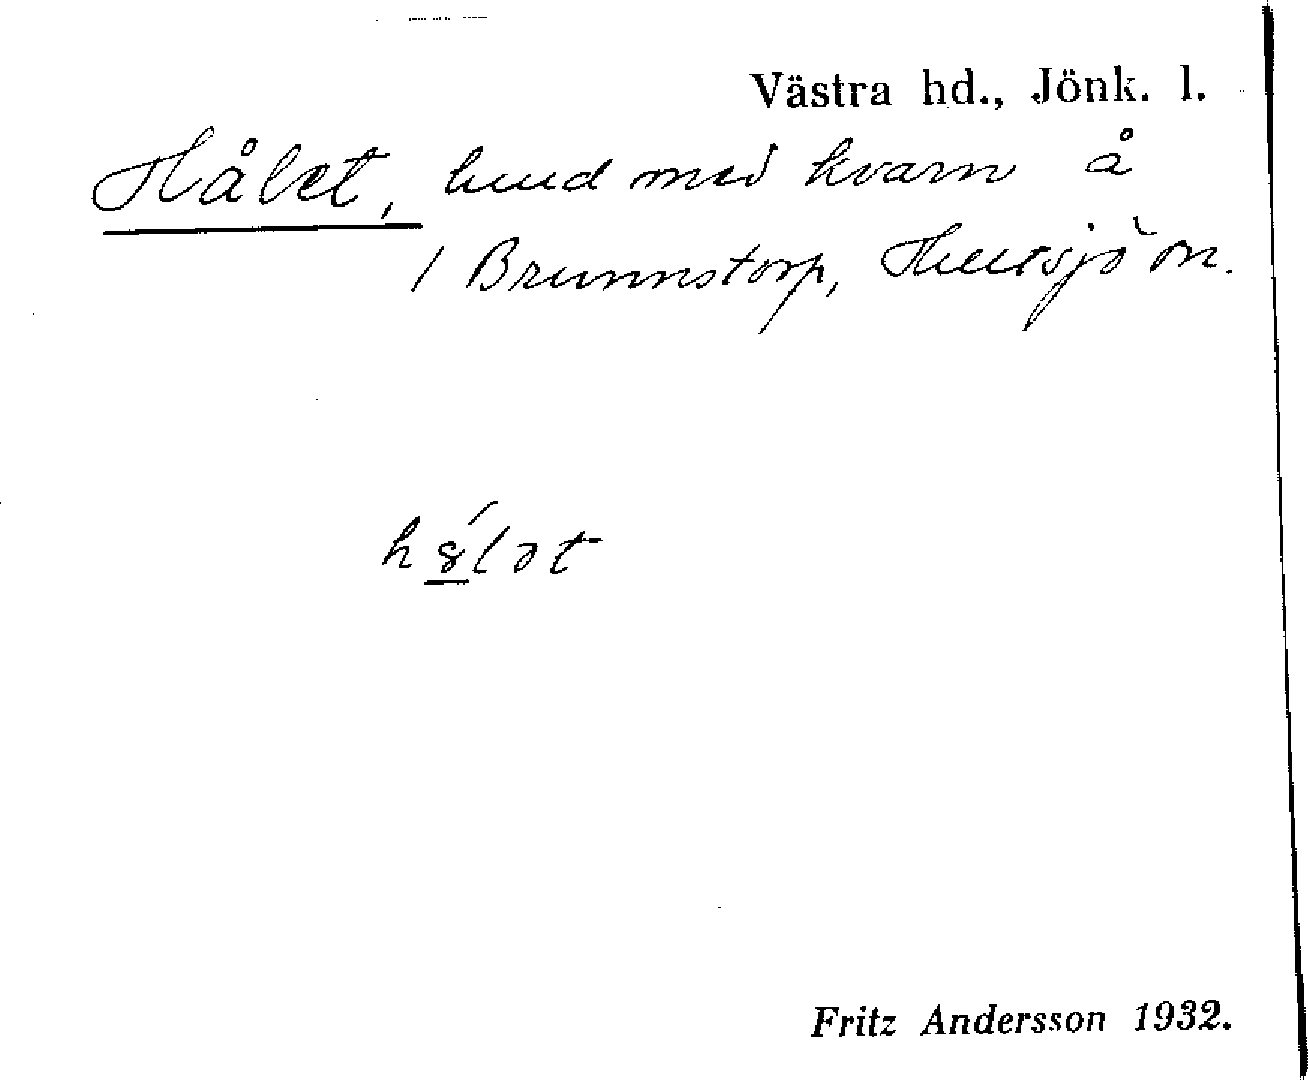 Västra hd., Jönk. l.
Hålet, lund med kvarn å
1 Brunnstorp, Hursjö sn.
hȣ́lət
Fritz Andersson 1932.